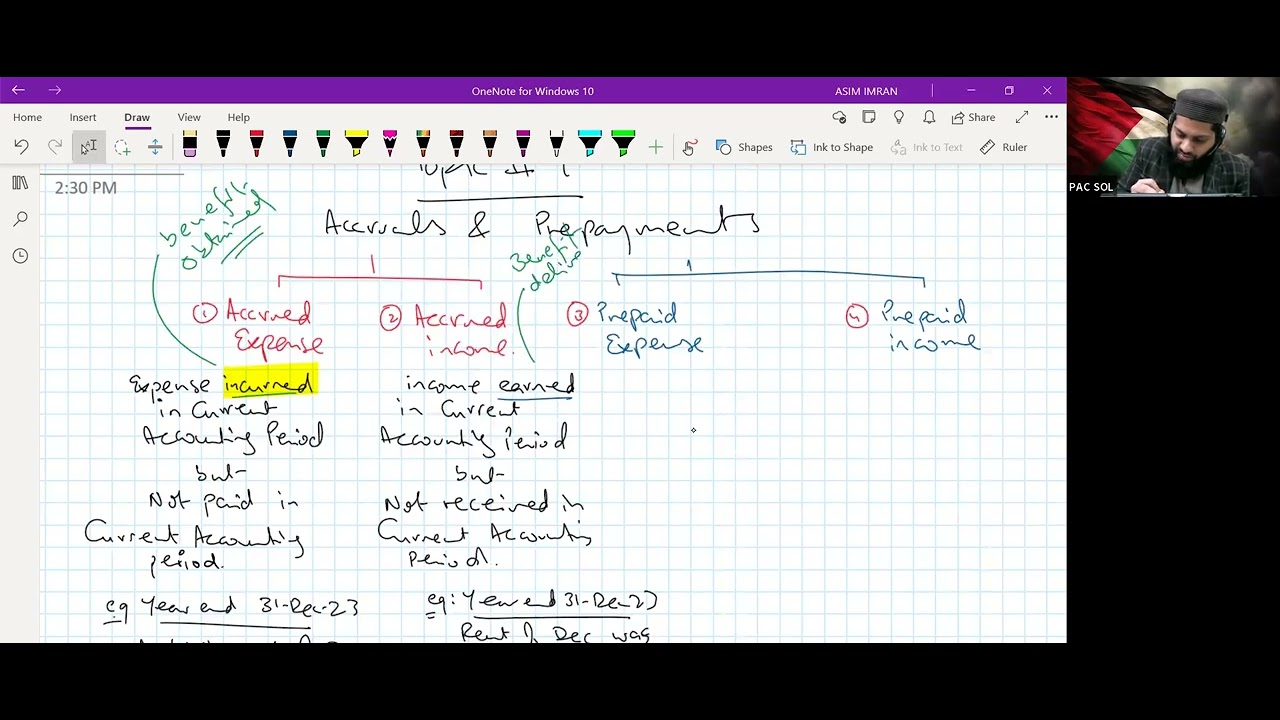 OneNote for Windows 10
ASIM IMRAN
Home Insert Draw View Help
Share
Shapes Ink to Shape Ink to Text Ruler
PAC SOL
2:30 PM
Accruals & Prepayments
benefit
obtained
Benefit
① Accrued
Expense
② Accrued
income.
③ Prepaid
Expense
④ Prepaid
income
Expense incurred
in Current
Accounting Period
but
Not paid in
Current Accounting
period.
eg Year end 31-Dec-23
income earned
in Current
Accounting Period
but
Not received in
Current Accounting
Period.
eg: Year end 31-Dec-23
Rent of Dec was